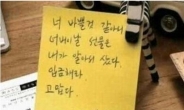 너 바쁠것 같아서
어버이날 선물은
내가 알아서 샀다.
입금해라
고맙다.